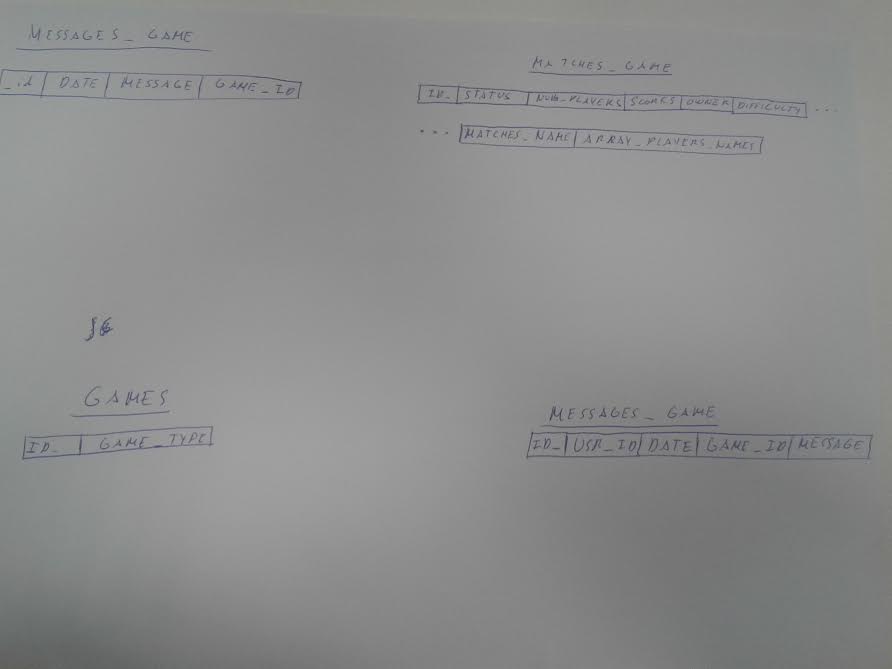 MESSAGES_GAME
_id DATE MESSAGE GAME_ID
MATCHES_GAME
ID_ STATUS NUM_PLAYERS SCORES OWNER DIFFICULTY ...
... MATCHES_NAME ARRAY_PLAYERS_NAMES
GAMES
ID_ GAME_TYPE
MESSAGES_GAME
ID_ USR_ID DATE GAME_ID MESSAGE